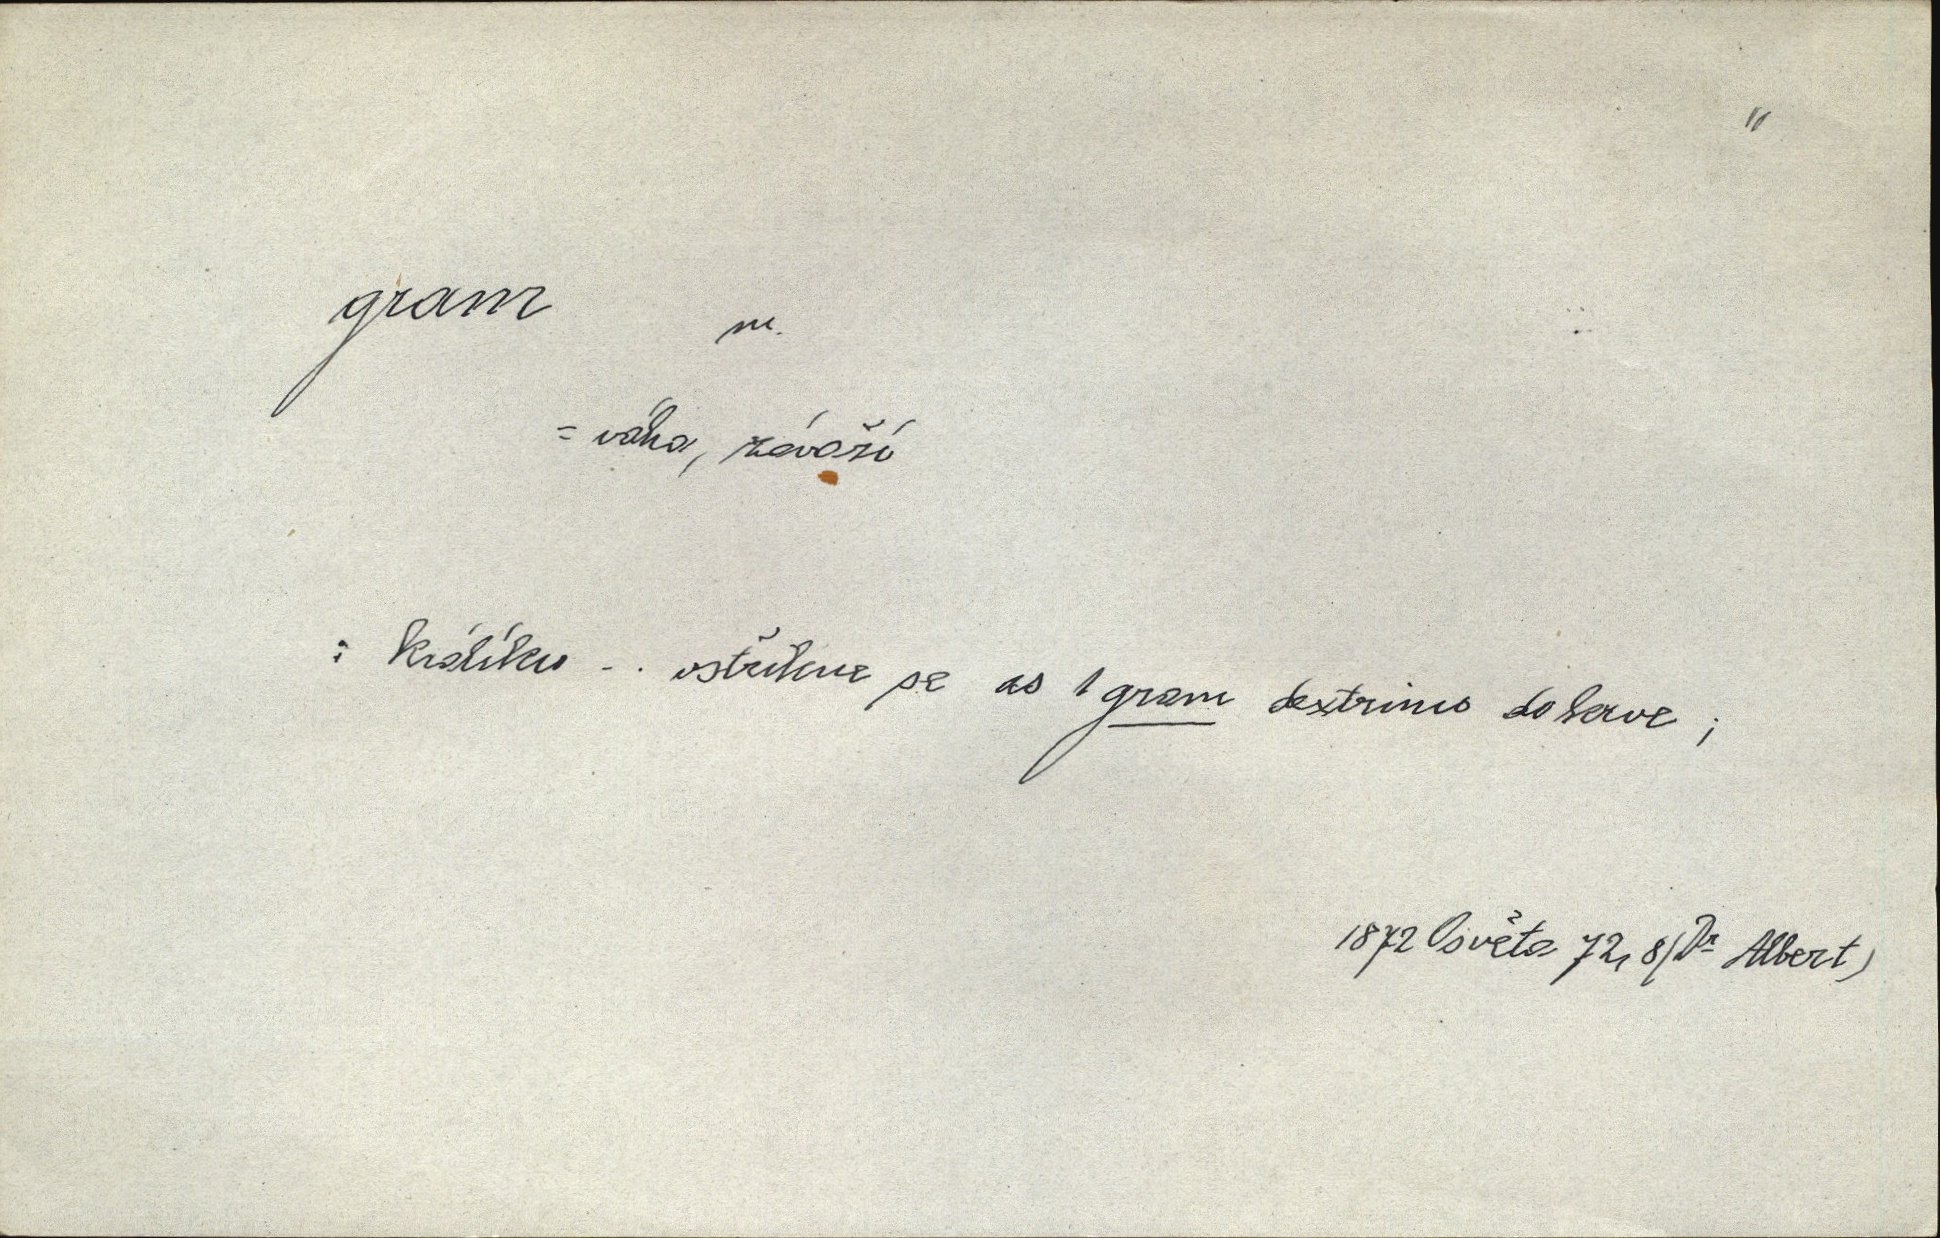 "
gram m.
= váha, závaží
: králíku .. vstřikne se as 1 gram dextrinu do krve ;
1872 Osvěta 72, 8 (Dr Albert)